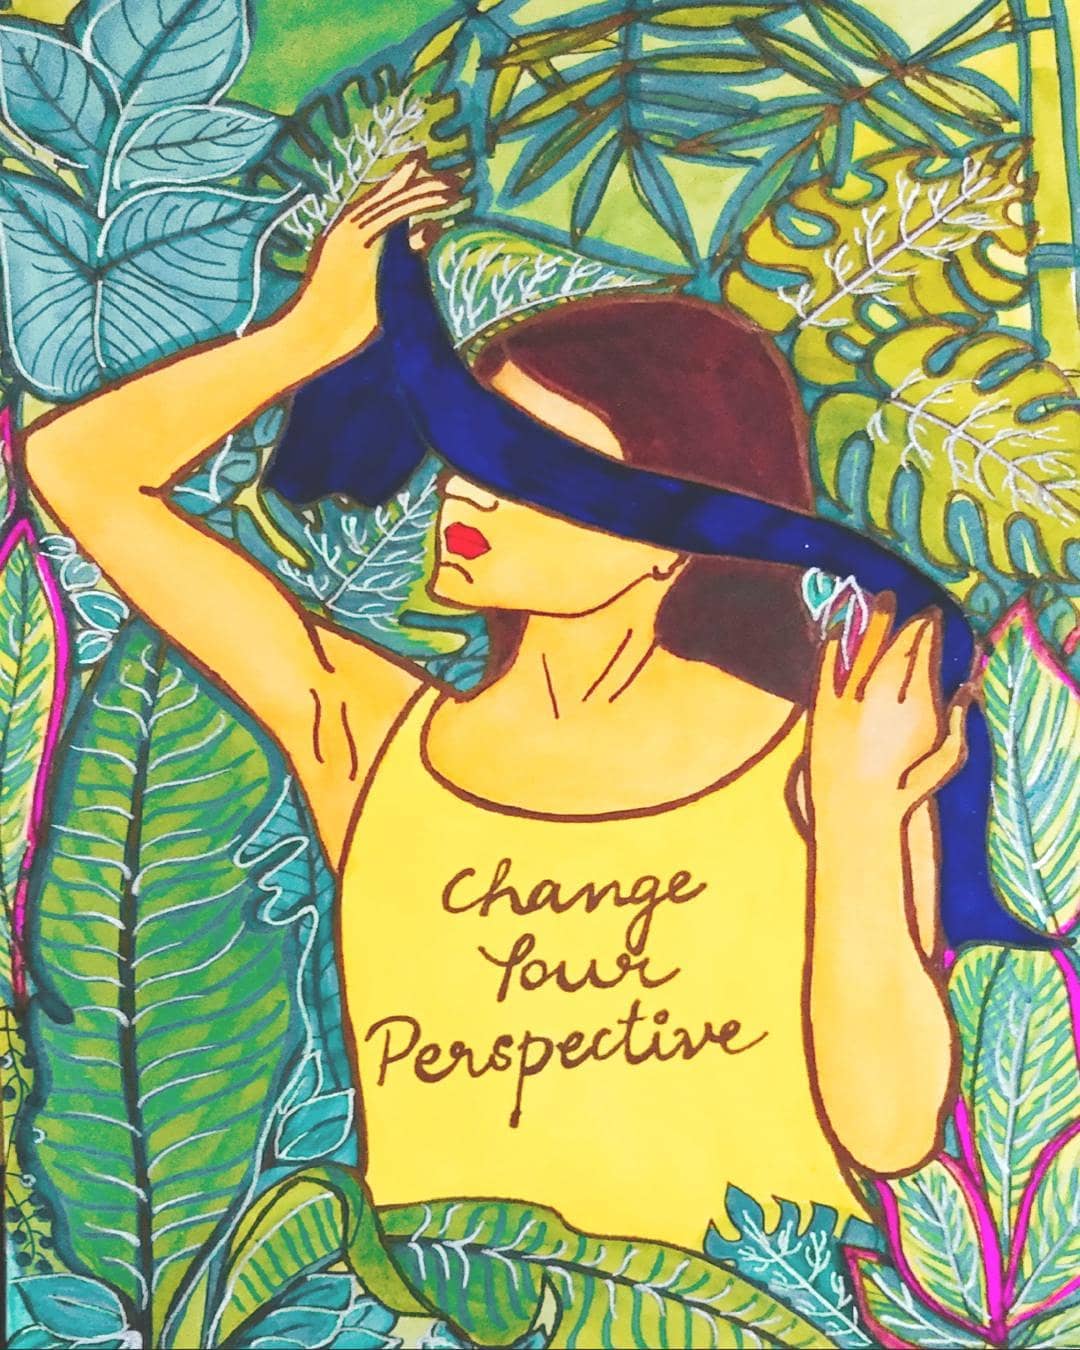 Change
Your
Perspective